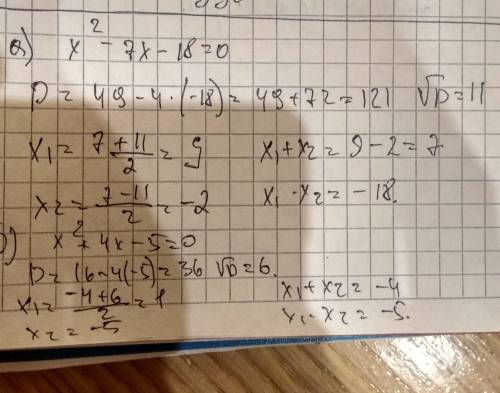 a) x² - 7x - 18 = 0
D = 49 - 4·(-18) = 49 + 72 = 121 √D = 11
x₁ = (7 + 11)/2 = 9 x₁ + x₂ = 9 - 2 = 7
x₂ = (7 - 11)/2 = -2 x₁ · x₂ = -18.
) x² + 4x - 5 = 0
D = 16 - 4(-5) = 36 √D = 6.
x₁ = (-4 + 6)/2 = 1 x₁ + x₂ = -4
x₂ = -5 x₁ · x₂ = -5.